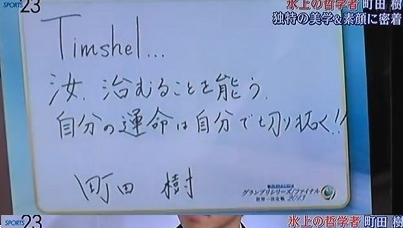 SPORTS 23
氷上の哲学者 町田 樹
独特の美学&素顔に密着
Timshel...
汝、治むることを能う。
自分の運命は自分で切り拓く!!
町田 樹
グランプリシリーズ/ファイナル
2013
SPORTS 23
氷上の哲学者 町田 樹